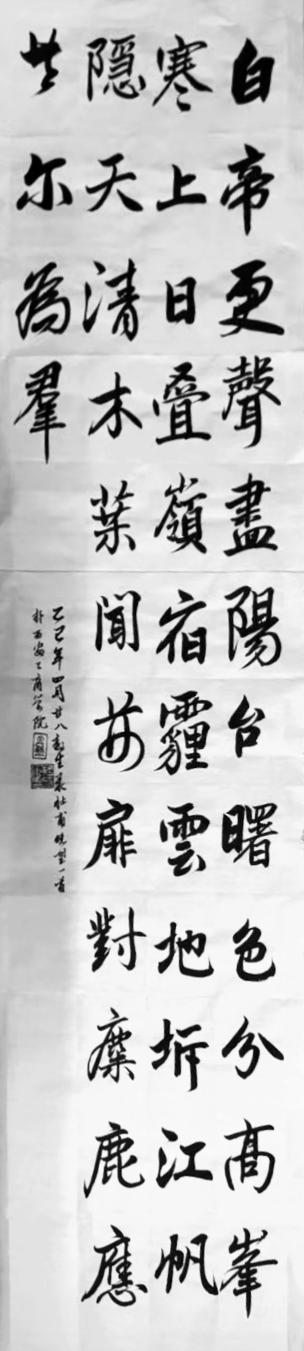 白帝更聲盡陽台曙色分高峯
寒上日叠嶺宿霾雲地坼江帆
隐天清木葉聞荆扉對麋鹿應
共尔為羣
乙巳年四月廿八录杜甫晓望一首
於西安工商学院